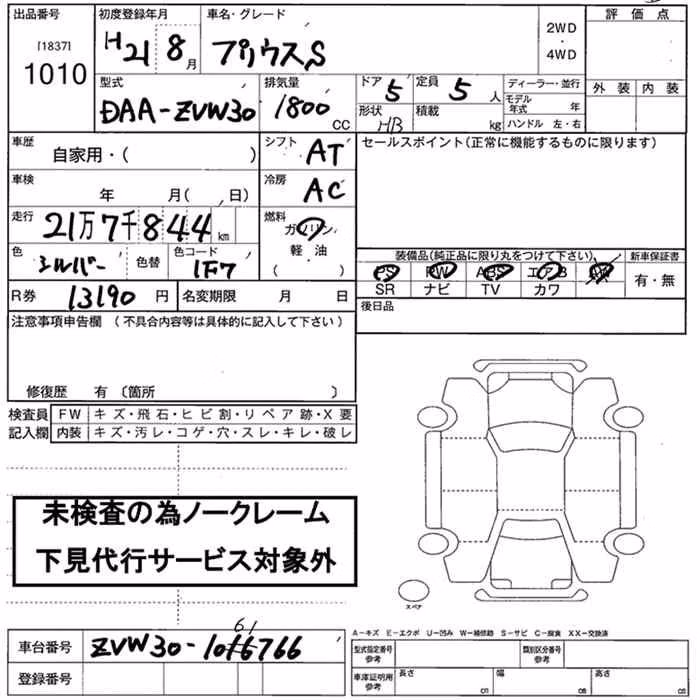 出品番号 初度登録年月 車名・グレード 評価点
[1837] H21 8月 プリウス S 2WD ・ 4WD
1010
型式 排気量 ドア 5 定員 5人 ディーラー・並行 外装 内装
DAA-ZVW30 1800 CC 形状 HB 積載 kg モデル年式 年
ハンドル 左・右
車歴 自家用・( ) シフト AT セールスポイント(正常に機能するものに限ります)
車検 年 月( 日) 冷房 AC
走行 21万7千844km 燃料 ガソリン
軽・油
( )
色 シルバー 色替 色コード 1F7 装備品(純正品に限り丸をつけて下さい) 新車保証書
PS PW ABS エアB AW 有・無
SR ナビ TV カワ
R券 13190円 名変期限 月 日 後日品
注意事項申告欄 (不具合内容等は具体的に記入して下さい)
修復歴 有 〔箇所 〕
検査員 FW キズ・飛石・ヒビ割・リペア跡・X要
記入欄 内装 キズ・汚レ・コゲ・穴・スレ・キレ・破レ
未検査の為ノークレーム
下見代行サービス対象外
スペア
A-キズ E-エクボ U-凹み W-補修跡 S-サビ C-腐食 XX-交換済
61
車台番号 ZVW30-1016766 型式指定番号 参考 類別区分番号 参考
登録番号 車庫証明用 参考 長さ cm 幅 cm 高さ cm